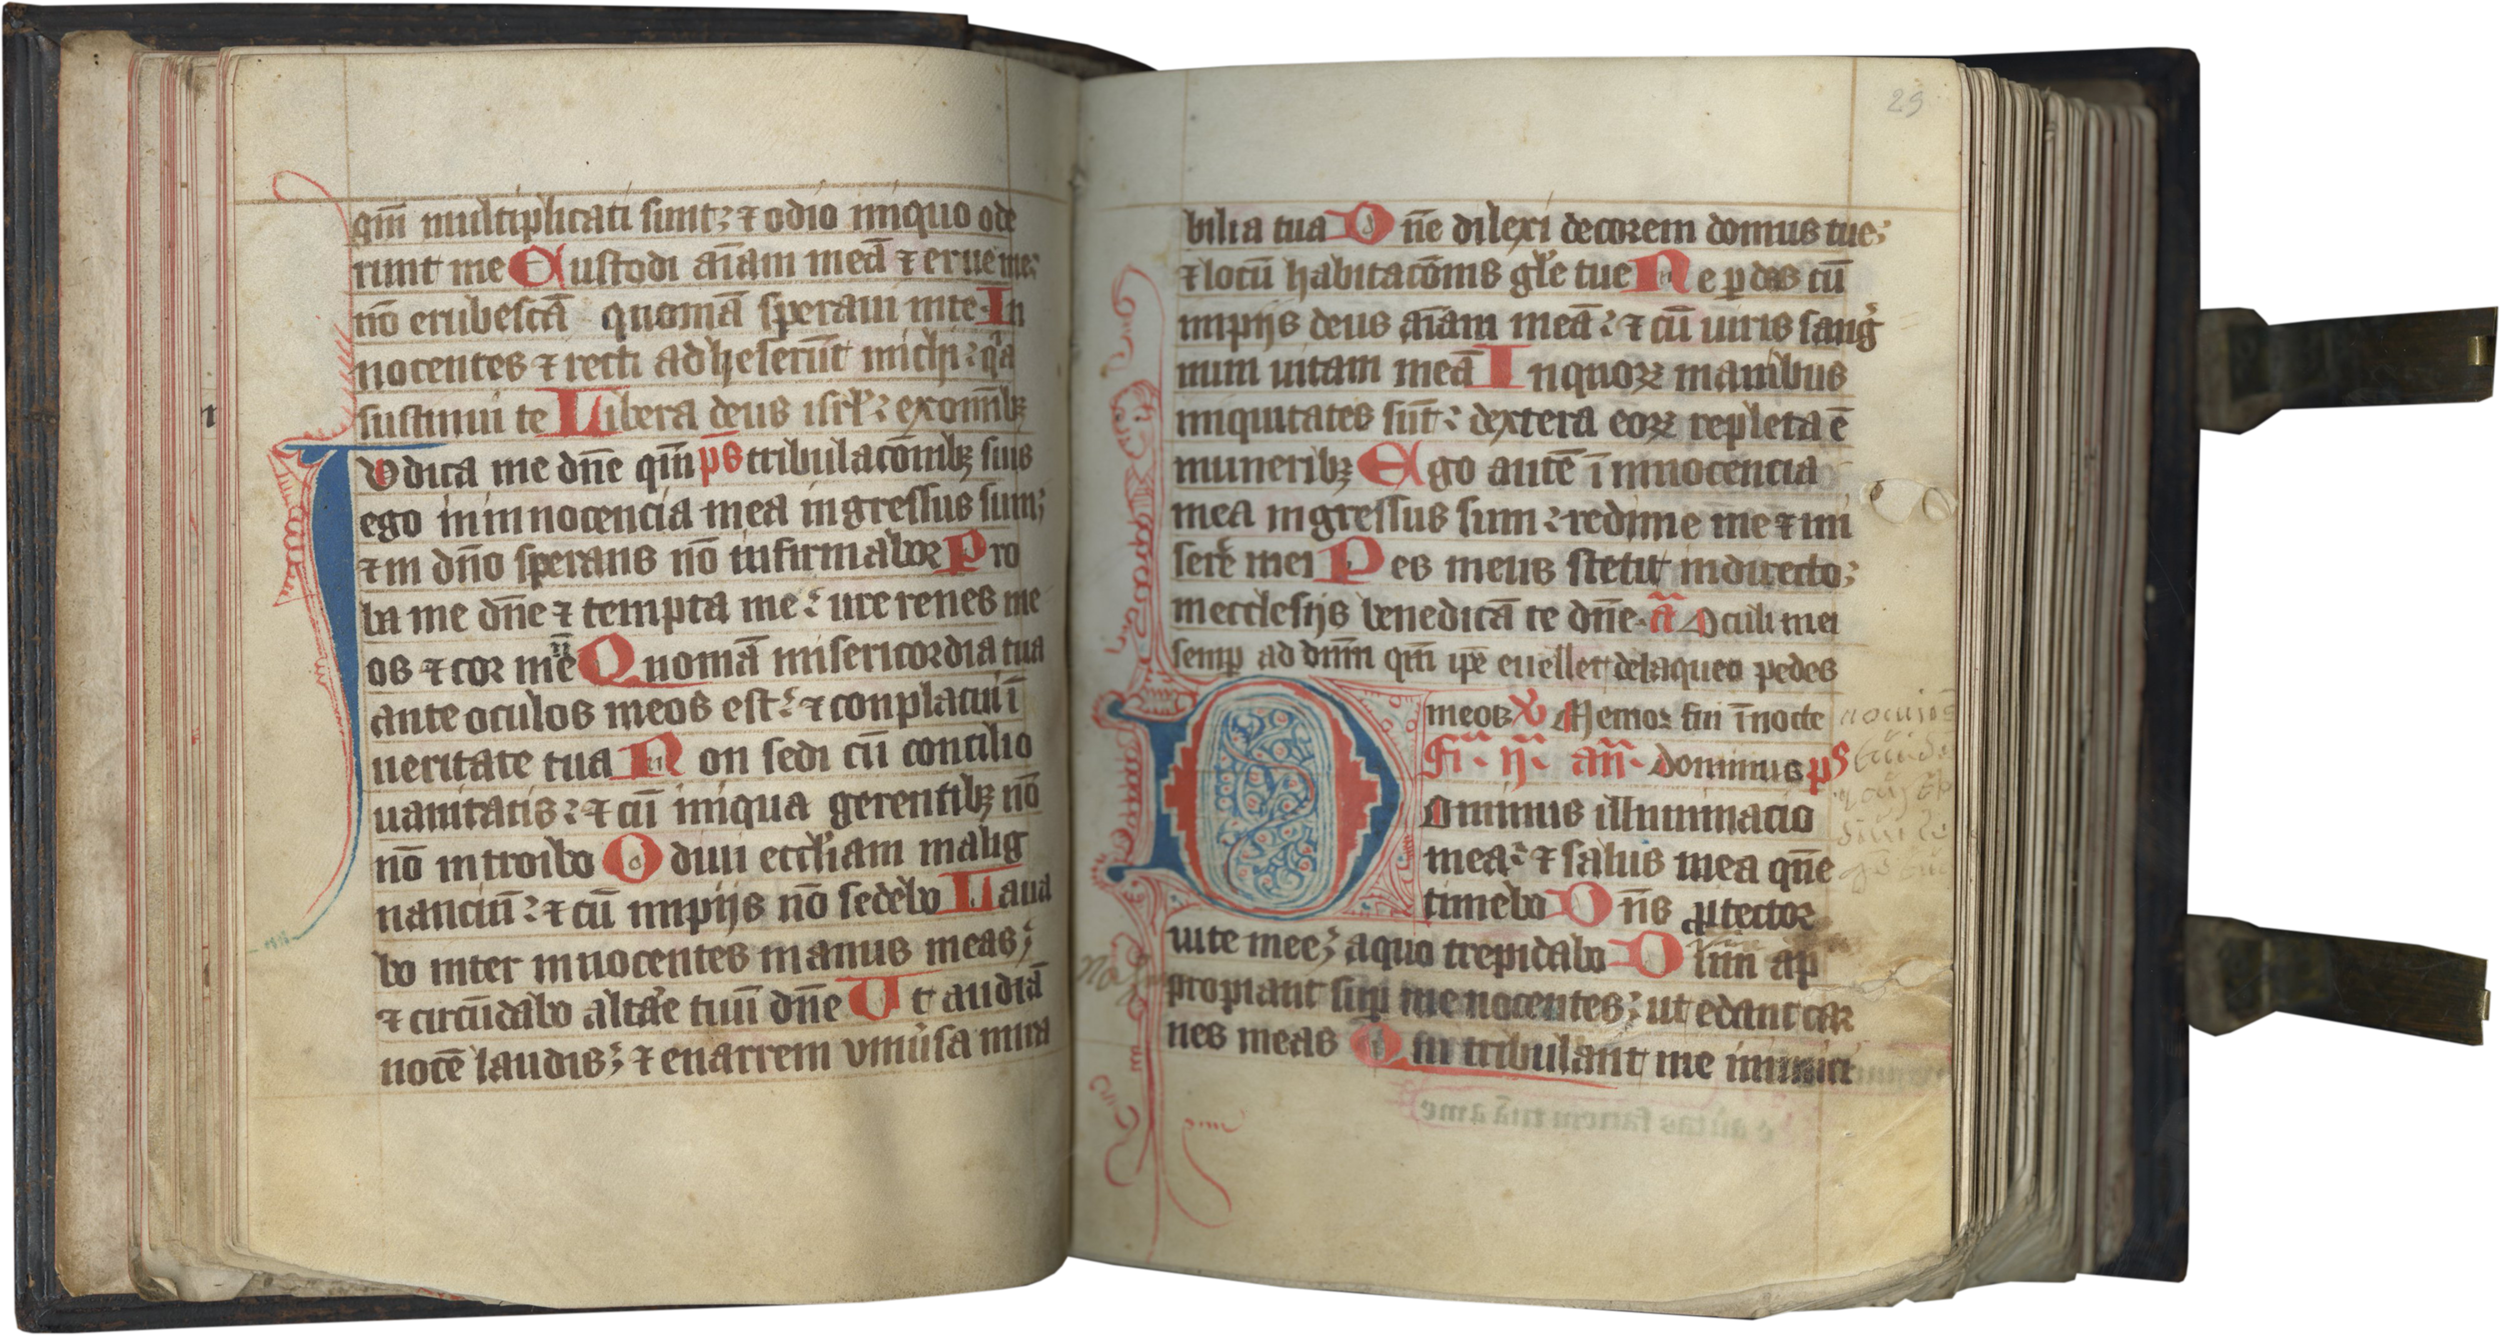 qm̄ multiplicati sunt; ⁊ odio iniquo ode
runt me Custodi aīam meā ⁊ erue me;
nō erubescā quoniā speraui inte In
nocentes ⁊ recti adheserūt michi: qͣa
sustinui te Libera deus isrl̄: exom̄ibꝫ
Iudica me dn̄e qm̄ ps tribulacōnibꝫ suis
ego in innocencia mea ingressus sum;
⁊ in dn̄o sperans nō infirmabor Pro
ba me dn̄e ⁊ tempta me: ure renes me
os ⁊ cor mēū Quoniā misericordia tua
ante oculos meos est: ⁊ conplacui ī
ueritate tua Non sedi cū concilio
uanitatis: ⁊ cū iniqua gerentibꝫ nō
nō introibo Odiui eccl̄iam malig
nanciū: ⁊ cū impijs nō sedebo Laua
bo inter innocentes manus meas;
⁊ circūdabo altar̄e tuū dn̄e Ut audiā
uocē laudis; ⁊ enarrem uniūsa mira
29
bilia tua Dn̄e dilexi decorem domus tue;
⁊ locū habitacōnis gl̄e tue Ne ꝑdas cū
impijs deus aīam meā: ⁊ cū uiris sangͥ
num uitam meā Inquoꝝ manibus
iniquitates sūt: dextera eoꝝ repleta ē
muneribꝫ Ego autē ī innocencia
mea ingressus sum: redime me ⁊ mi
serēr mei Pes meus stetit indirecto;
inecclesijs benedicā te dn̄e. a͞ Oculi mei
semꝑ ad dn̄m qm̄ ip̄e euellet delaqueo pedes
meos ꝟ Memor fui ī nocte
f͞i. ij. an̄. dominus ps
Dominus illuminacio
mea: ⁊ salus mea qūe
timebo Dn̄s ꝓtector
uite mee; aquo trepidabo Dum ap
propiant suꝑ me nocentes; ut edant car
nes meas Qui tribulant me inimici